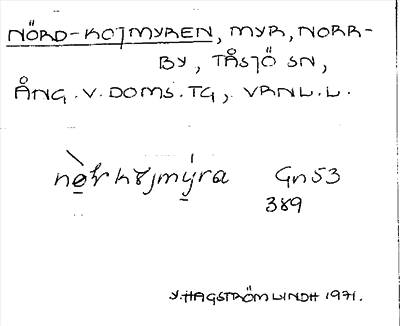 NÖRD-KOJMYREN, MYR, NORR-
BY, TÅSJÖ SN,
ÅNG. V. DOMS. TG, VRNL.L.
Gn 53
389
Y. HAGSTRÖM LINDH 1971.